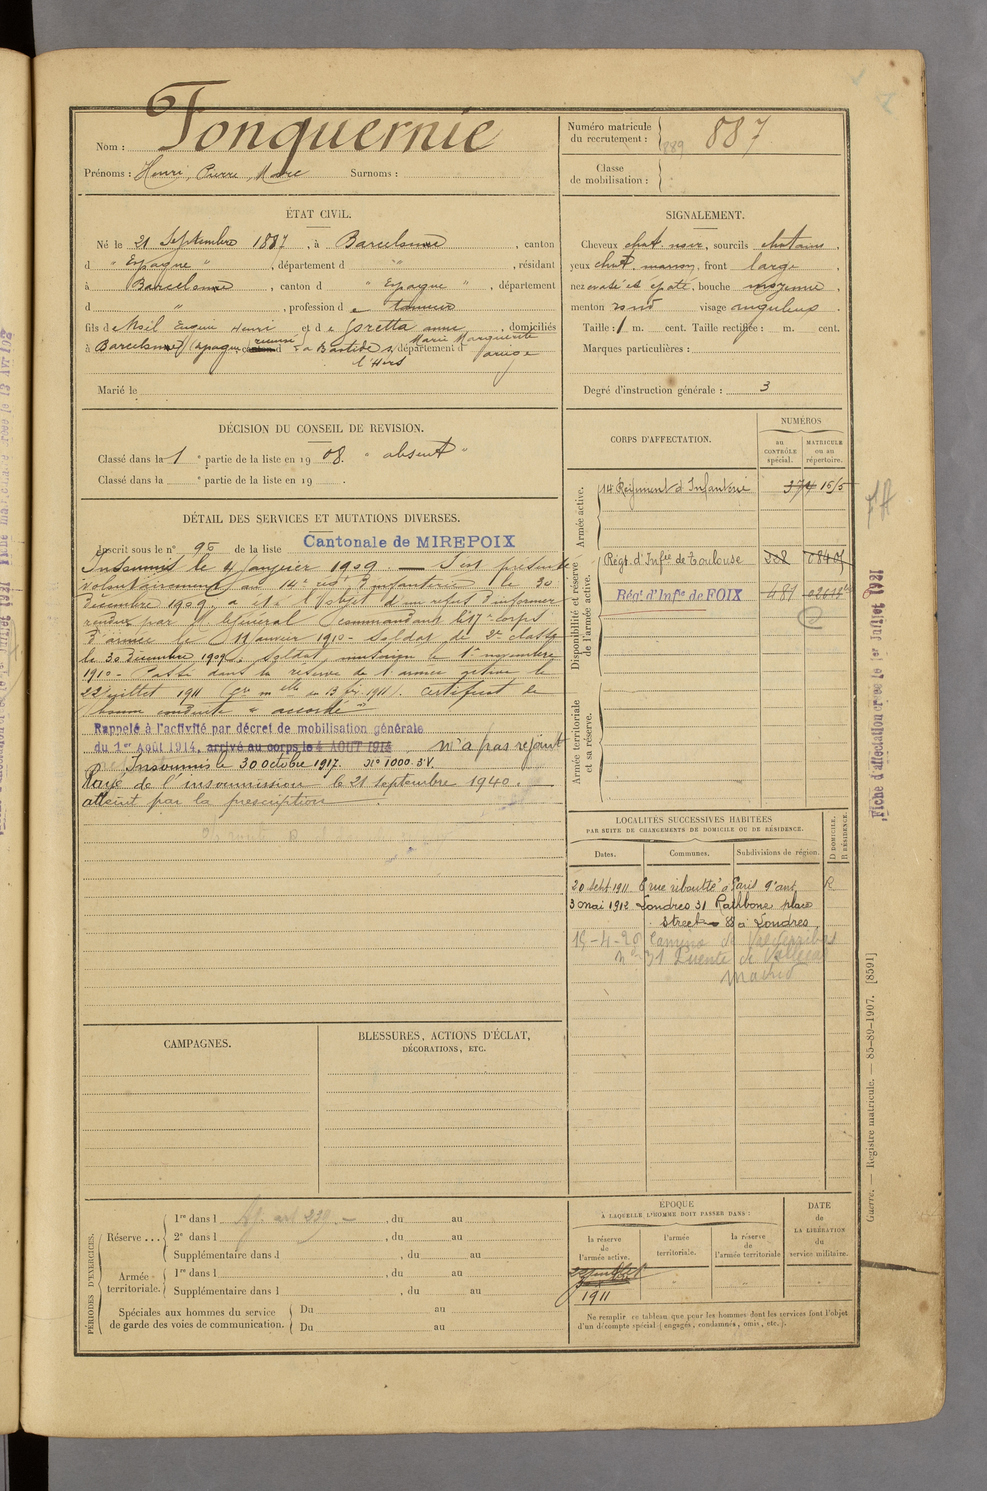 Nom : Fonquernie
Prénoms : Henri, Pierre, Marc Surnoms :
Numéro matricule du recrutement : 889 887
Classe de mobilisation :
ÉTAT CIVIL.
Né le 21 Septembre 1887, à Barcelonne, canton
d " Espagne ", département d " , résidant
à Barcelonne, canton d " Espagne ", département
d " , profession d e tanneur
fils d e Eugène Henri et d e anne, domiciliés
Marie Marguerite
à Barcelonne (Espagne) canton d La Bastide s/ département d Ariège
l'Hers
Marié le
SIGNALEMENT.
Cheveux chat. noir, sourcils chatains,
yeux chat. marron, front large,
nez évasé et épaté, bouche moyenne,
menton rond visage anguleux
Taille : 1 m. cent. Taille rectifiée : m. cent.
Marques particulières :
Degré d'instruction générale : 3
DÉCISION DU CONSEIL DE REVISION.
Classé dans la 1 e partie de la liste en 1908. " absent "
Classé dans la e partie de la liste en 19 .
DÉTAIL DES SERVICES ET MUTATIONS DIVERSES.
Inscrit sous le n° 95 de la liste Cantonale de MIREPOIX
Insoumis le 4 janvier 1909. — S'est présenté
volontairement au 14e regt d'infanterie le 30
décembre 1909, a été l'objet d'un refus d'informer
rendu par le Général Commandant le 17e corps
d'armée le 11 janvier 1910 - Soldat de 2e classe
le 30 Décembre 1909. Soldat musicien le 1er novembre
1910 - Passé dans la réserve de l'armée active le
22 juillet 1911 (Cre m elle du 13 1911). Certificat de
bonne conduite " accordé "
Rappelé à l'activité par décret de mobilisation générale
du 1er Août 1914, arrivé au corps le 4 AOUT 1914. n'a pas rejoint
Insoumis le 30 octobre 1917. N° 1000 S.V.
Rayé de l'insoumission le 21 septembre 1940.
atteint par la prescription
CORPS D'AFFECTATION.
NUMÉROS
au CONTRÔLE spécial.
MATRICULE ou au répertoire.
Armée active.
14 Régiment d'Infanterie 374 1515
Disponibilité et réserve de l'armée active.
Régt. d'Infie de Toulouse
Régt. d'Infie de FOIX 481
Armée territoriale et sa réserve.
LOCALITÉS SUCCESSIVES HABITÉES
PAR SUITE DE CHANGEMENTS DE DOMICILE OU DE RÉSIDENCE.
Dates. Communes. Subdivisions de région. D DOMICILE. R RÉSIDENCE.
20 Sept 1911. 8 rue riboutté à Paris 9e arrt R
3 mai 1912 Londres 31 Rathbone place
street à Londres
15-4-20 Camino de Valderribas
n° 31 Puente de Vallecas
Madrid
CAMPAGNES.
BLESSURES, ACTIONS D'ÉCLAT,
DÉCORATIONS, ETC.
PÉRIODES D'EXERCICES.
Réserve ... 1re dans l , du au
2e dans l , du au
Supplémentaire dans l , du au
Armée territoriale. 1re dans l , du au
Supplémentaire dans l , du au
Spéciales aux hommes du service de garde des voies de communication. Du au
Du au
ÉPOQUE
À LAQUELLE L'HOMME DOIT PASSER DANS :
la réserve de l'armée active.
l'armée territoriale.
la réserve de l'armée territoriale
DATE de LA LIBÉRATION du service militaire.
1911
Ne remplir ce tableau que pour les hommes dont les services font l'objet
d'un décompte spécial (engagés, condamnés, omis, etc.).
Fiche d'affectation créée le 1er Juillet 1921
Guerre. — Registre matricule. — 85-89-1907. [8591]